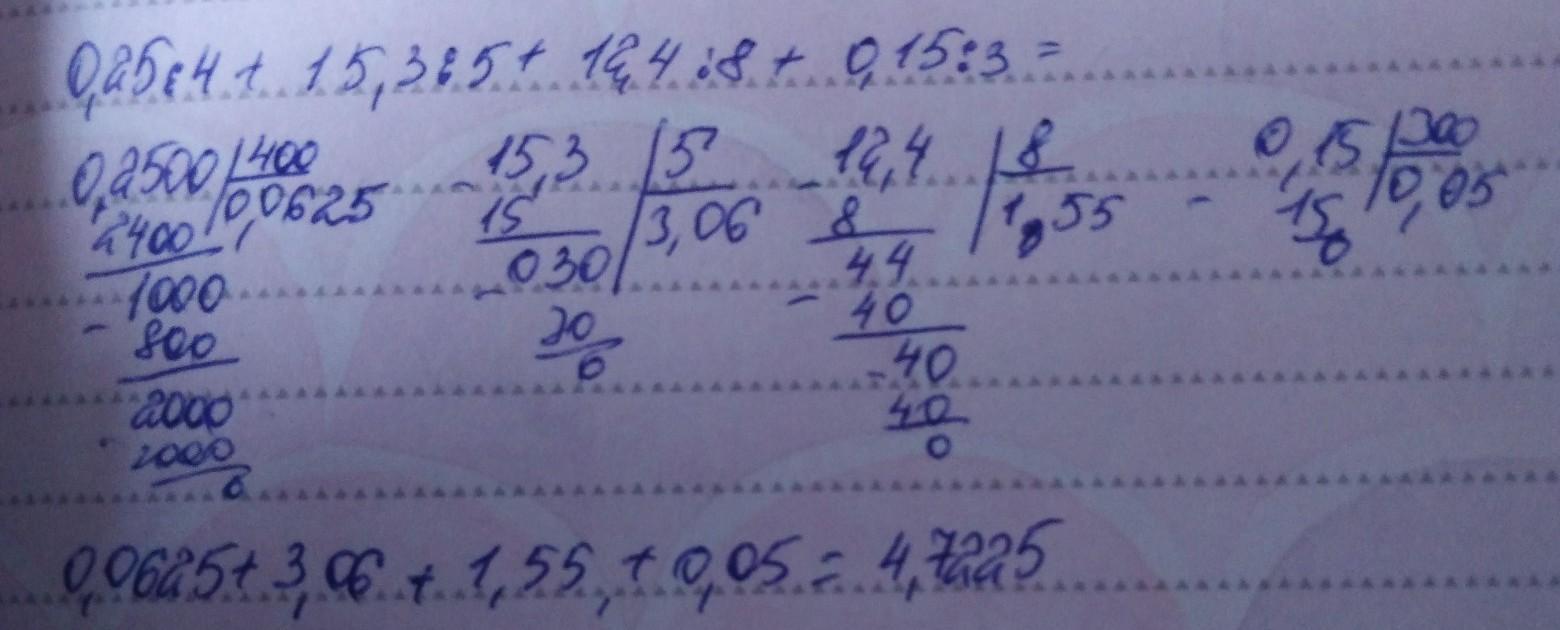 0,25:4 + 15,3:5 + 12,4:8 + 0,15:3 =
0,2500 400 - 15,3 5 - 12,4 8 - 0,15 300
2400 0,0625 15 3,06 8 1,55 15 0,05
1000 - 030 44 0
- 800 30 - 40
2000 0 - 40
- 2000 40
0 0
0,0625 + 3,06 + 1,55 + 0,05 = 4,7225